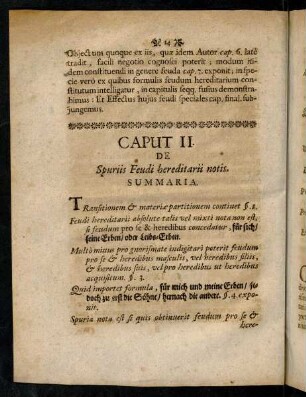 4
Objectum quoque ex iis, quæ idem Autor cap. 6. latè
tradit, facili negotio cognosci poterit; modum iti-
dem constituendi in genere feuda cap. 7. exponit; in spe-
cie verò ex quibus formulis feudum hereditarium con-
stitutum intelligatur, in capitalis seqq. fusius demonstra-
bimus: Et Effectus hujus feudi speciales cap. final. sub-
jungemus.
CAPUT II.
DE
Spuriis Feudi hereditarii notis.
SUMMARIA.
TRansitionem & materiæ partitionem continet §. 1.
Feudi hereditarii absolutè talis vel mixti nota non est,
si feudum pro se & heredibus concedatur, für sich/
seine Erben/ oder Leibs-Erben.
Multò minus pro gnorismate indigitari poterit feudum
pro se & heredibus masculis, vel heredibus filiis,
& heredibus suis, vel pro heredibus ut heredibus
acquisitum. §. 3.
Quid importet formula, für mich und meine Erben/ je-
doch zu erst die Söhne/ hernach die andere. §. 4 expo-
nit.
Spuria nota est si quis obtinuerit feudum pro se &
here-